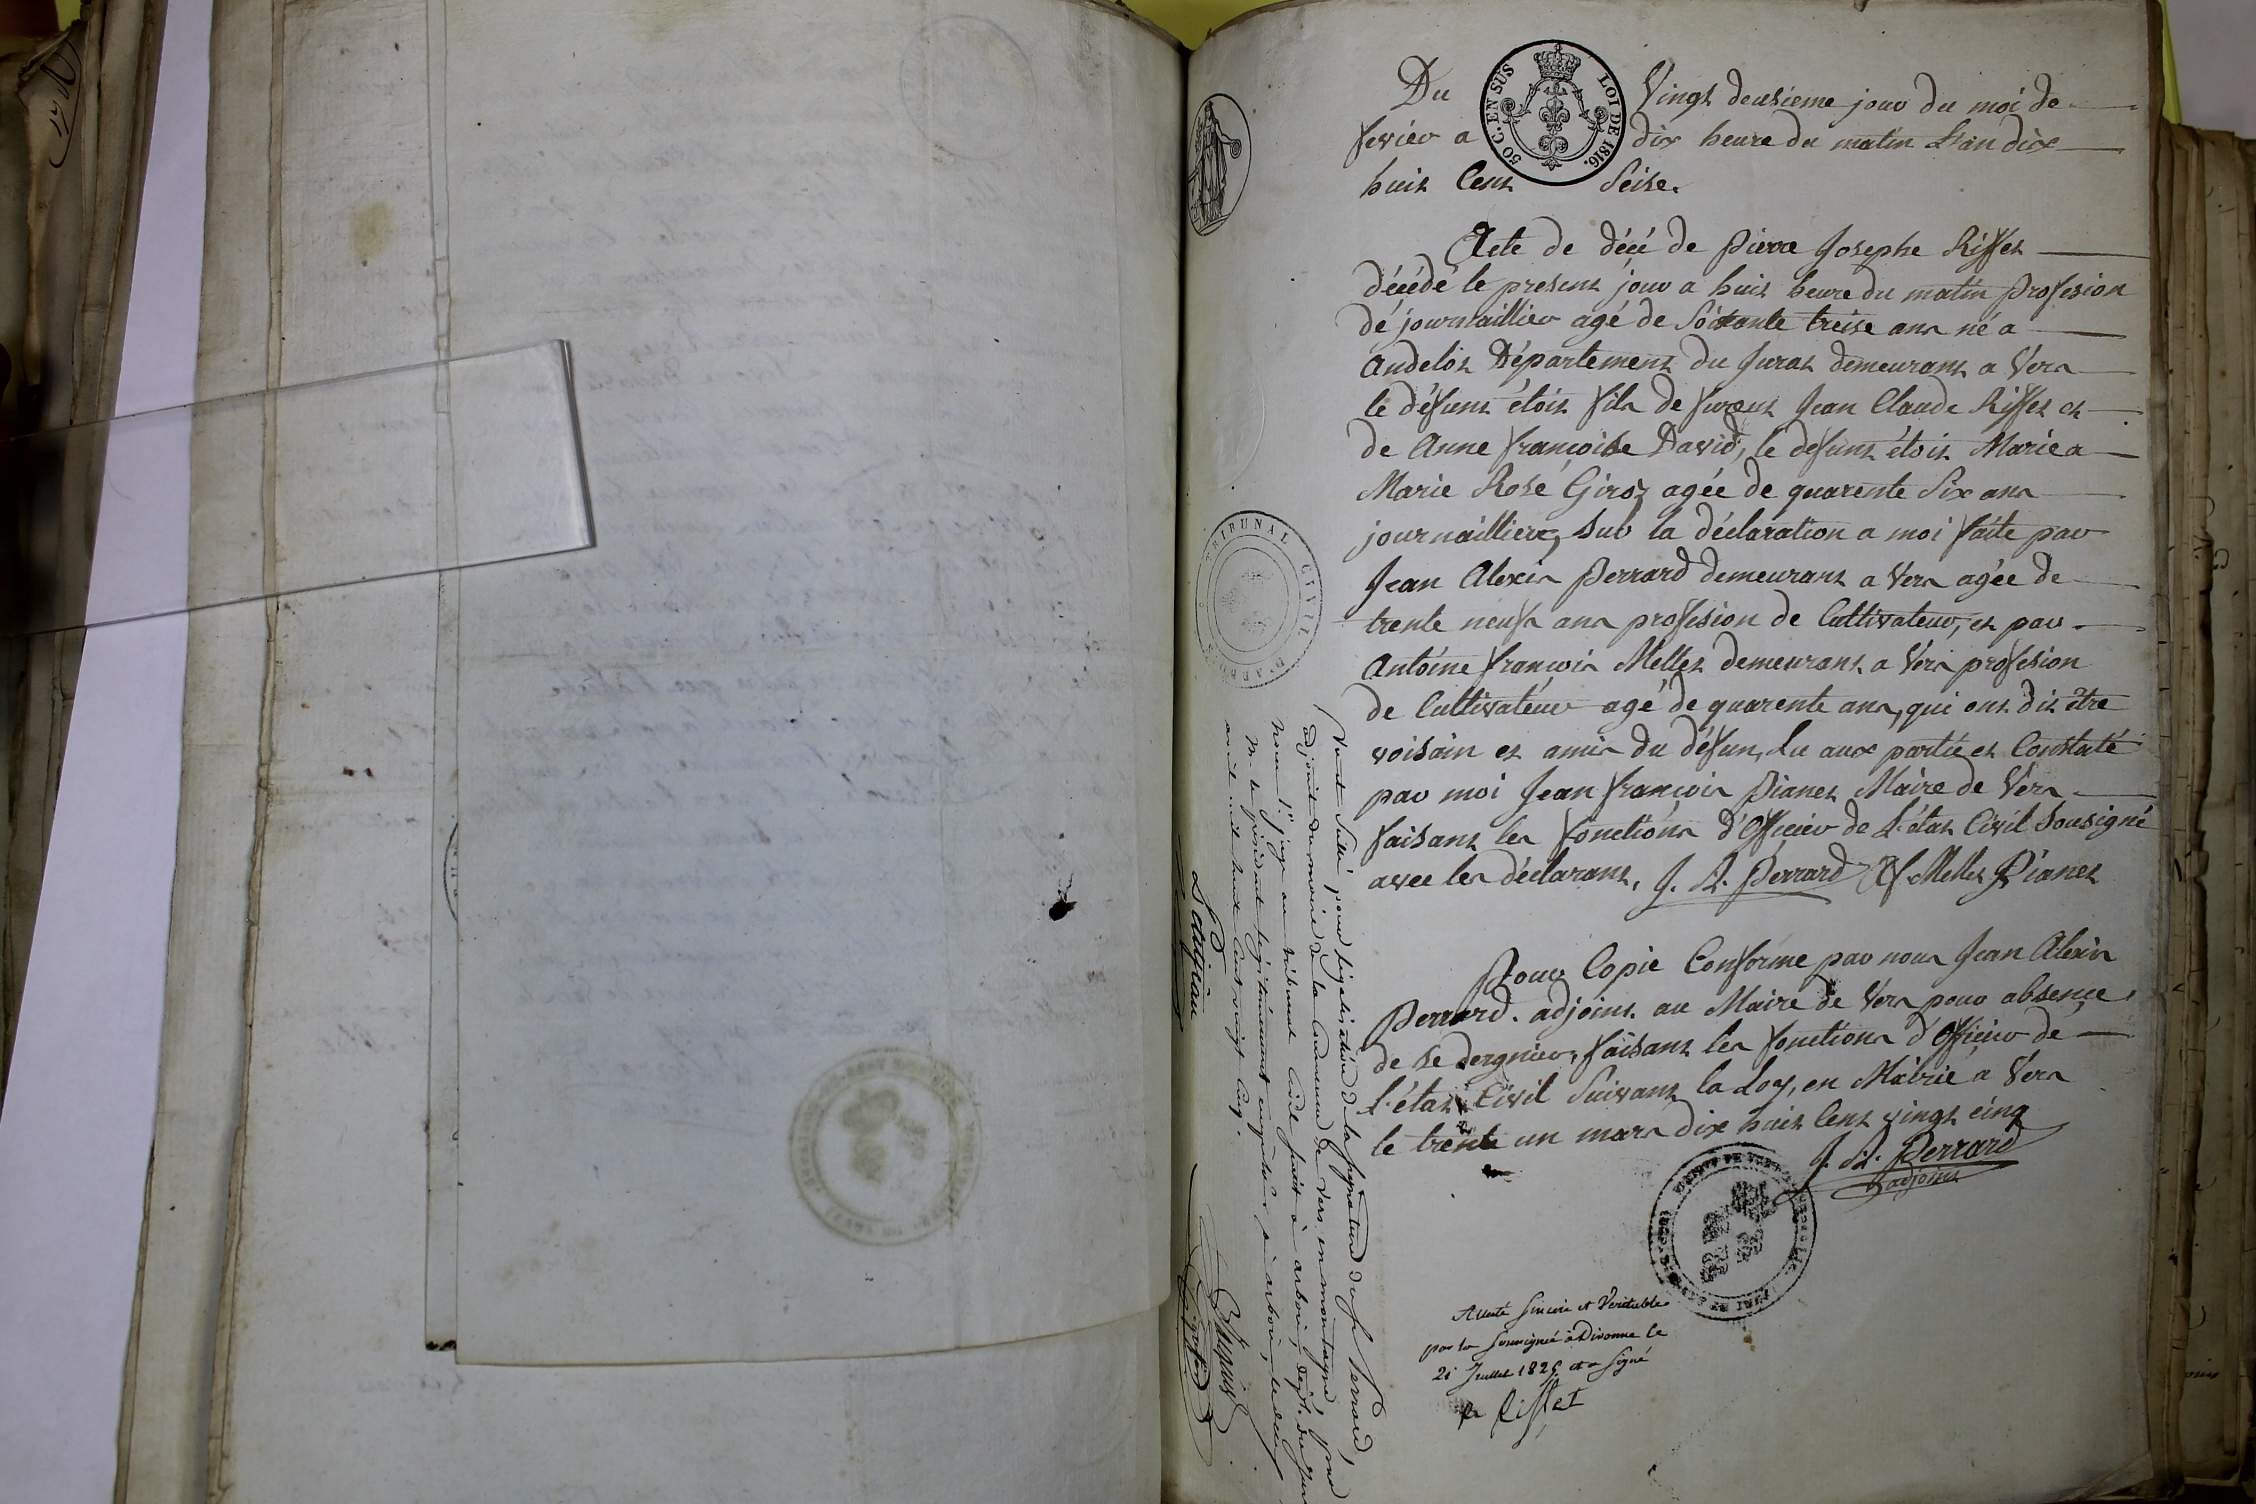 Du Vingt deusieme jour du moi de
fevier a dix heure du matin L'an dixe
huit Cent Seise.
50 C. EN SUS LOI DE 1816.
Acte de décé de Pierre Josephe Riffet
décédé le present jour a huit heure du matin profesion
de journaillier agé de Soixante treise ans né a
Andelot Département du Jurat demeurant a Vers
le défunt étoit fils de furent Jean Claude Riffet et
de Anne françoise David, le defunt étoit Marié a
Marie Rose Giroz agée de quarente Six ans
journailliere, Sur la déclaration a moi faite par
Jean Alexis Perrard demeurant a Vers agée de
trente neufs ans profesion de Cultivateur, et par
Antoine françois Mellet demeurant a Vers profesion
de Cultivateur agé de quarente ans, qui ont dit être
voisain et amis du défun, Lu aux partie et Constaté
par moi Jean françois Pianet Maire de Vers
faisant les fonctions d'Officier de L'état Civil Sousigné
avec les déclarant, J. A. Perrard A f. Mellet Pianet
Pour Copie Conforme par nous Jean Alexis
Perrard. adjoint au Maire de Vers pour absence
de se dergnier, faisant les fonctions d'Officier de
L'état Civil Suivant la Loy, en Mairie a Vers
le trente un mars dix huit Cent vingt cinq
J. A. Perrard
adjoint
Atteste Sincere et Veritable
par la Soussignée à Divonne le
21 Juillet 1825 et a Signé
Riffet
TRIBUNAL CIVIL D'ARBOIS
Vu et Scellé pour légalisation de la signature du Sr Perrard,
adjoint du maire de la Commune de Vers en montagne, par
Nous 1.er juge au tribunal Civil séant à arbois, dépt. du Jura
M. le président légitimement empêché. à arbois, le
avril mil huit Cent vingt Cinq.